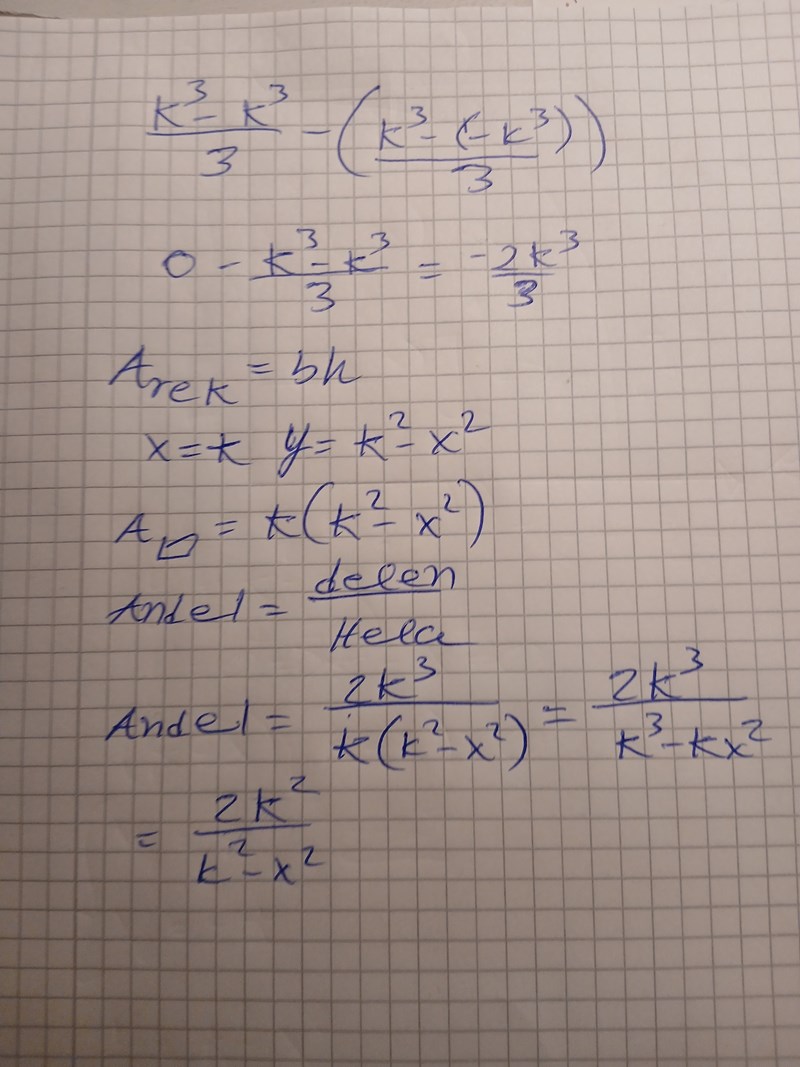 \frac{k^3 - k^3}{3} - \left(\frac{k^3 - (-k^3)}{3}\right)
0 - \frac{k^3 - k^3}{3} = \frac{-2k^3}{3}
A_{rek} = bh
x = k  y = k^2 - x^2
A_▱ = k(k^2 - x^2)
Andel = \frac{delen}{Hela}
Andel = \frac{2k^3}{k(k^2 - x^2)} = \frac{2k^3}{k^3 - kx^2}
= \frac{2k^2}{k^2 - x^2}